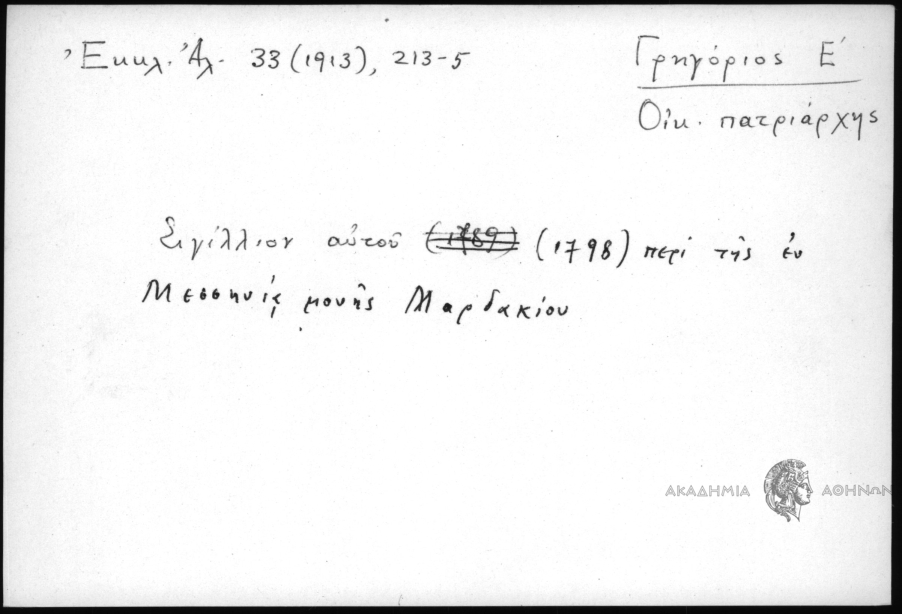 Ἐκκλ. Ἀλ. 33 (1913), 213-5
Γρηγόριος Ε΄
Οἰκ. πατριάρχης
Σιγίλλιον αὐτοῦ (1789) (1798) περί τῆς ἐν
Μεσσηνίᾳ μονῆς Μαρδακίου
ΑΚΑΔΗΜΙΑ ΑΘΗΝΩΝ